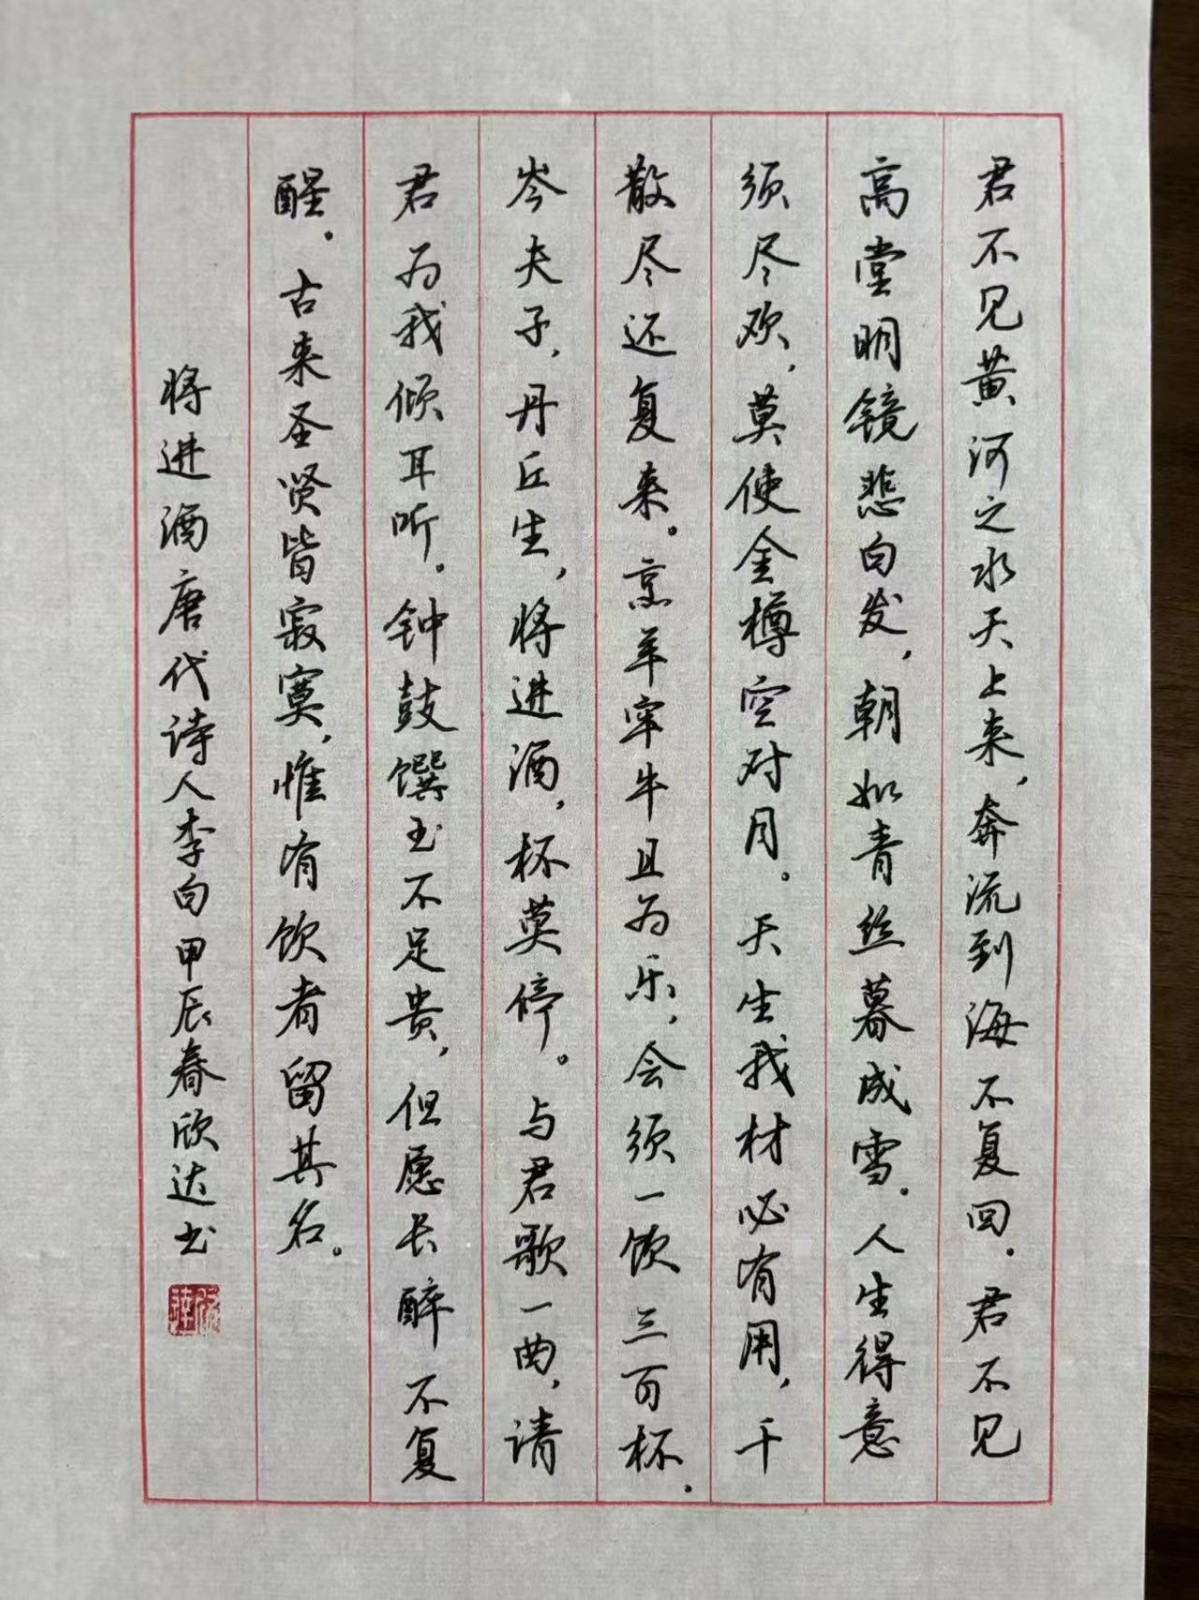 君不见黄河之水天上来，奔流到海不复回。君不见
高堂明镜悲白发，朝如青丝暮成雪。人生得意
须尽欢，莫使金樽空对月。天生我材必有用，千
散尽还复来。烹羊宰牛且为乐，会须一饮三百杯。
岑夫子，丹丘生，将进酒，杯莫停。与君歌一曲，请
君为我倾耳听。钟鼓馔玉不足贵，但愿长醉不复
醒。古来圣贤皆寂寞，惟有饮者留其名。
将进酒唐代诗人李白甲辰春欣达书